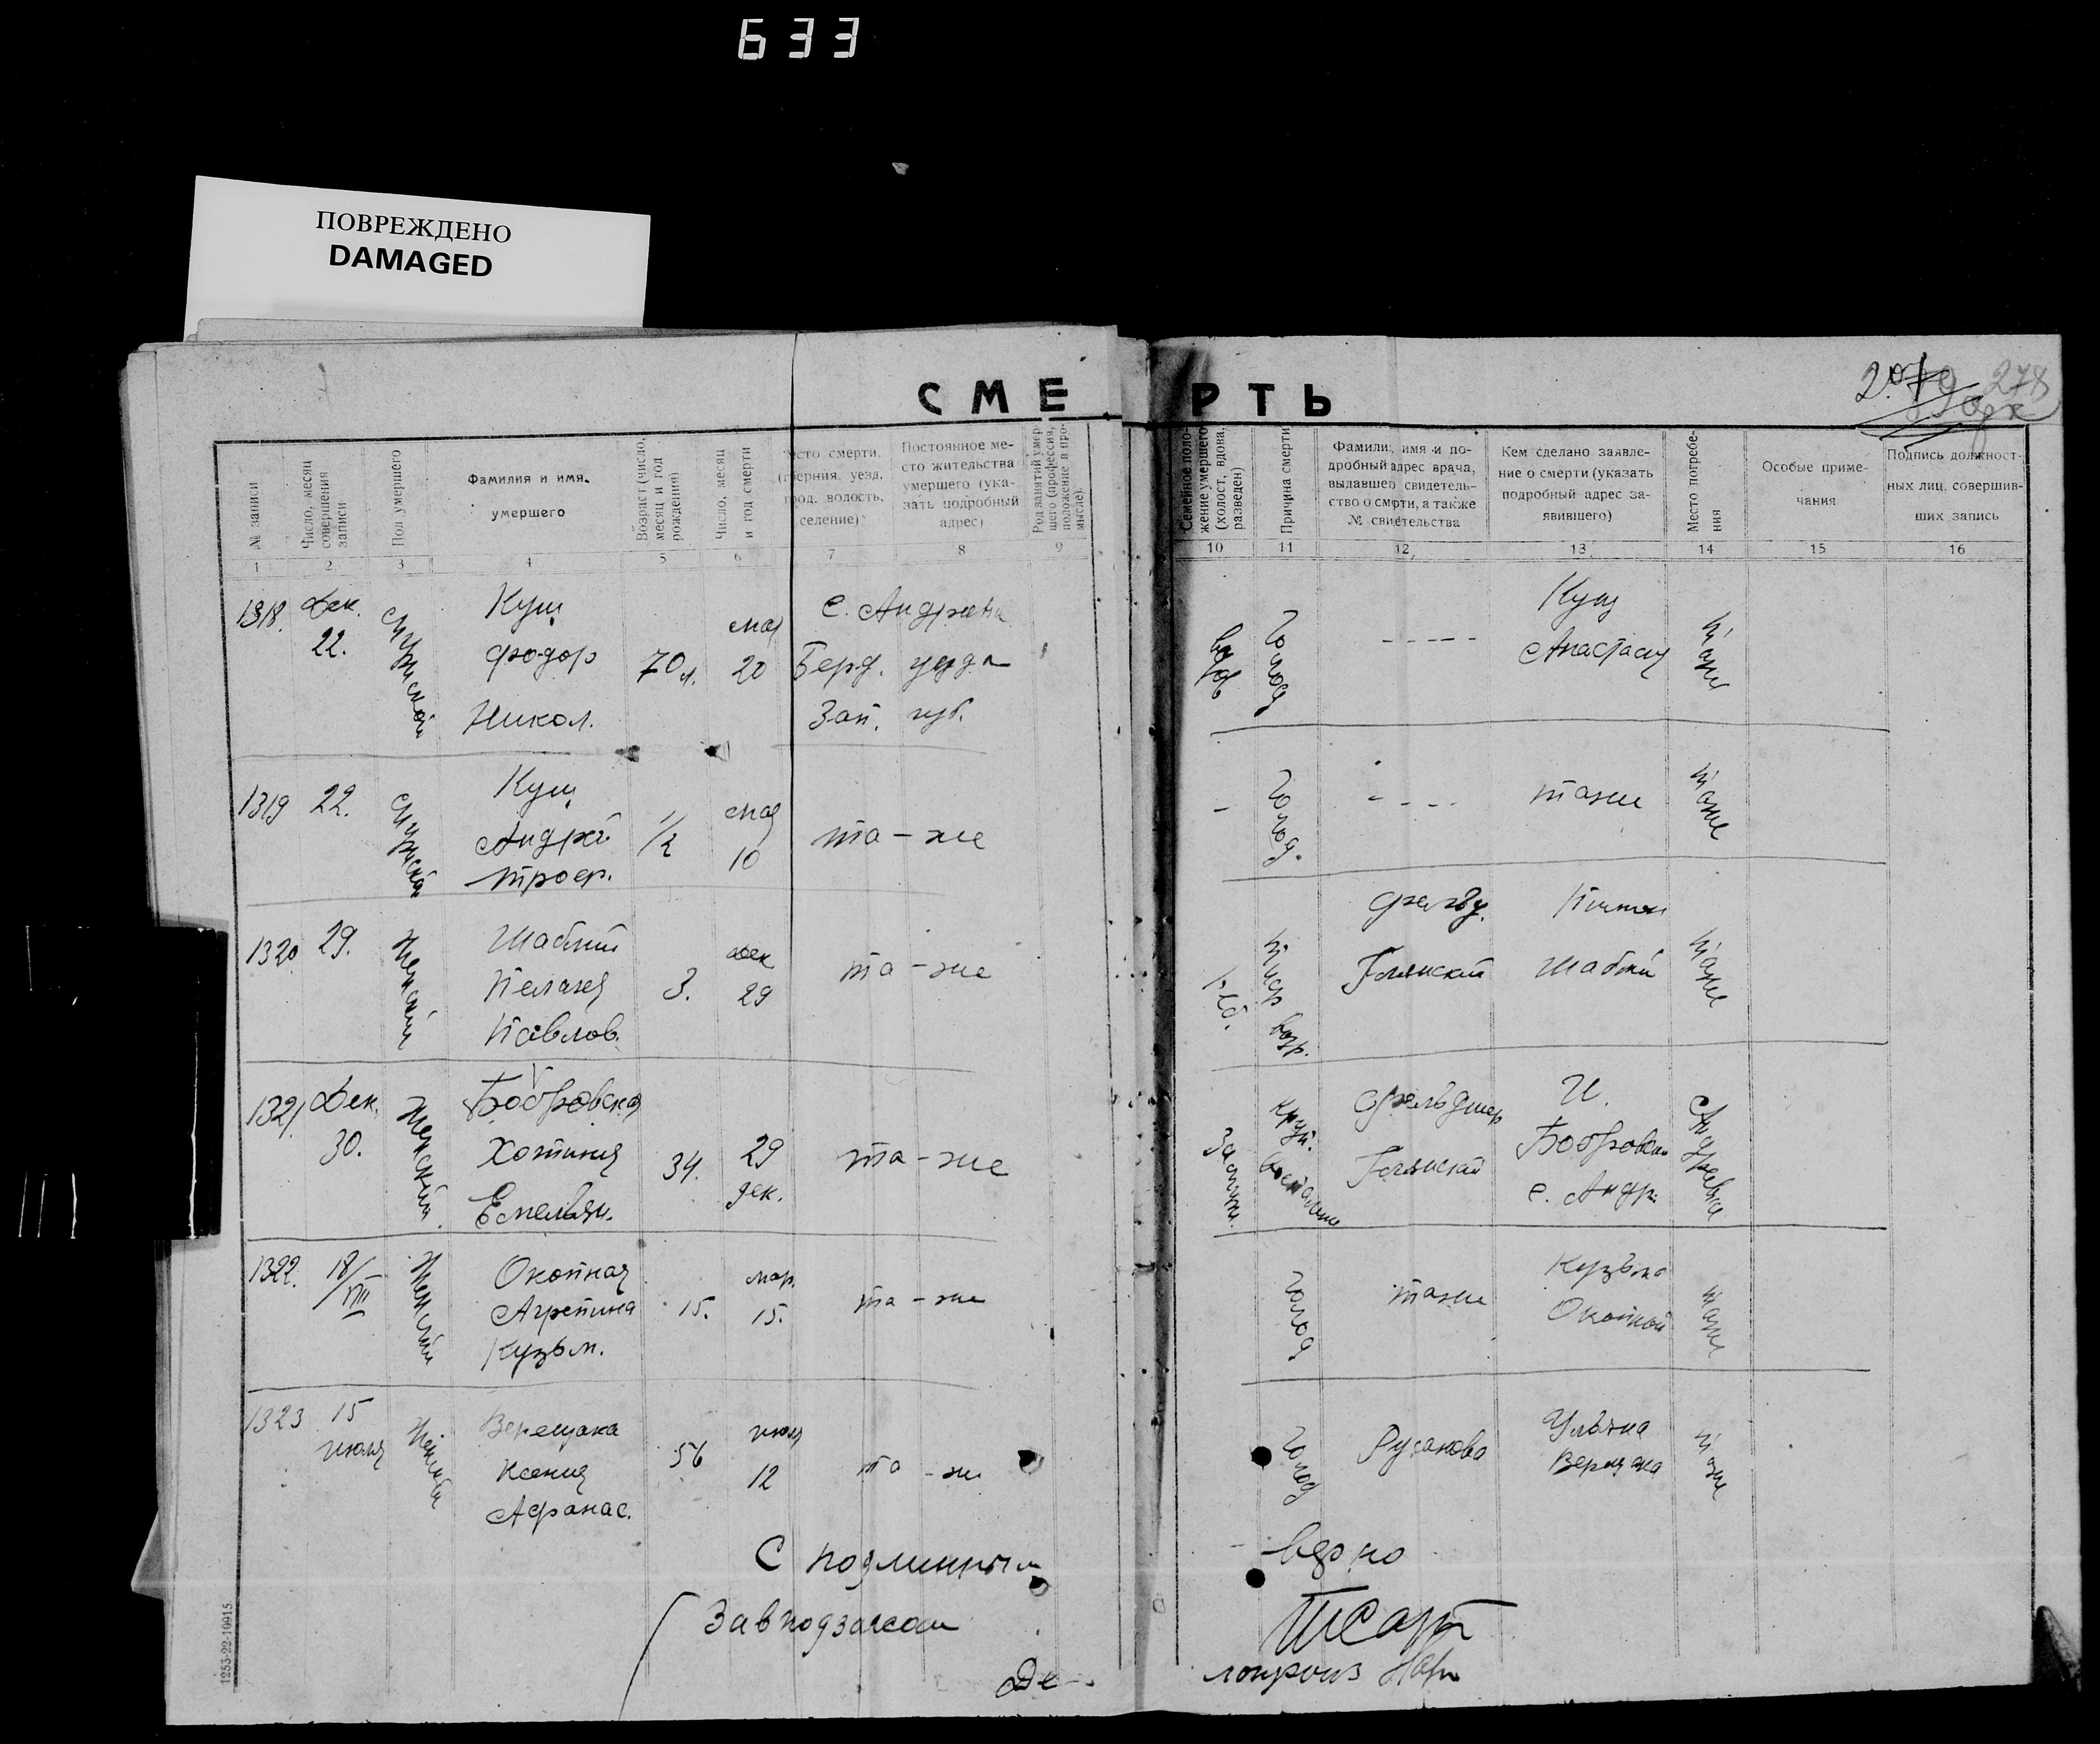 633
ПОВРЕЖДЕНО
DAMAGED
СМЕ РТЬ
278
№ записи
Число, месяц совершения записи
Пол умершего
Фамилия и имя умершего
Возраст (число, месяц и год рождения)
Число, месяц и год смерти
есто смерти, (губерния, уезд, род, волость, селение)
Постоянное место жительства умершего (указать подробный адрес)
Род занятий умершего (профессия, положение в промысле).
Семейное положение умершего (холост, вдова, разведен)
Причина смерти
Фамилия, имя и подробный адрес врача, выдавшего свидетельство о смерти, а также № свидетельства
Кем сделано заявление о смерти (указать подробный адрес заявившего)
Место погребения
Особые примечания
Подпись должностных лиц, совершивших запись
1 2 3 4 5 6 7 8 9 10 11 12 13 14 15 16
1318. Дек. 22. Мужской
Кущ
Федор
Никол.
70 л.
мая
20
с. Андреевк
Берд. уезда
Зап. губ.
вдов
Голод
-----
Кущ
Анастасия
тоже
1319 22. Мужской
Кущ
Андрей
Троф.
1/2
мая
10
та-же
-
Голод.
----
таже
таже
1320 29. Женский
Шаблий
Пелагея
Павлов.
3.
дек
29
та-же
Фельд.
Голянский
Шаблий
таже
1321. Дек. 30. Женский.
Бобровская
Хотиния
Емельян.
34.
29
дек.
та-же
Замужн.
Круп. воспаление
Фельдшер
Голянский
И.
Бобровск
с. Андр.
Андреевка
1322. 18/VIII Женский
Окопная
Агрепина
Кузьм.
15.
мар.
15.
та-же
голод
таже
Кузьма
Окопной
таже
1323 15 июля Женский
Верещака
Ксения
Афанас.
56
июля
12
та-же
голод
Русакова
Ульяна
Верещака
таже
С подлинным верно
Завподзагсом
1253-22-10915